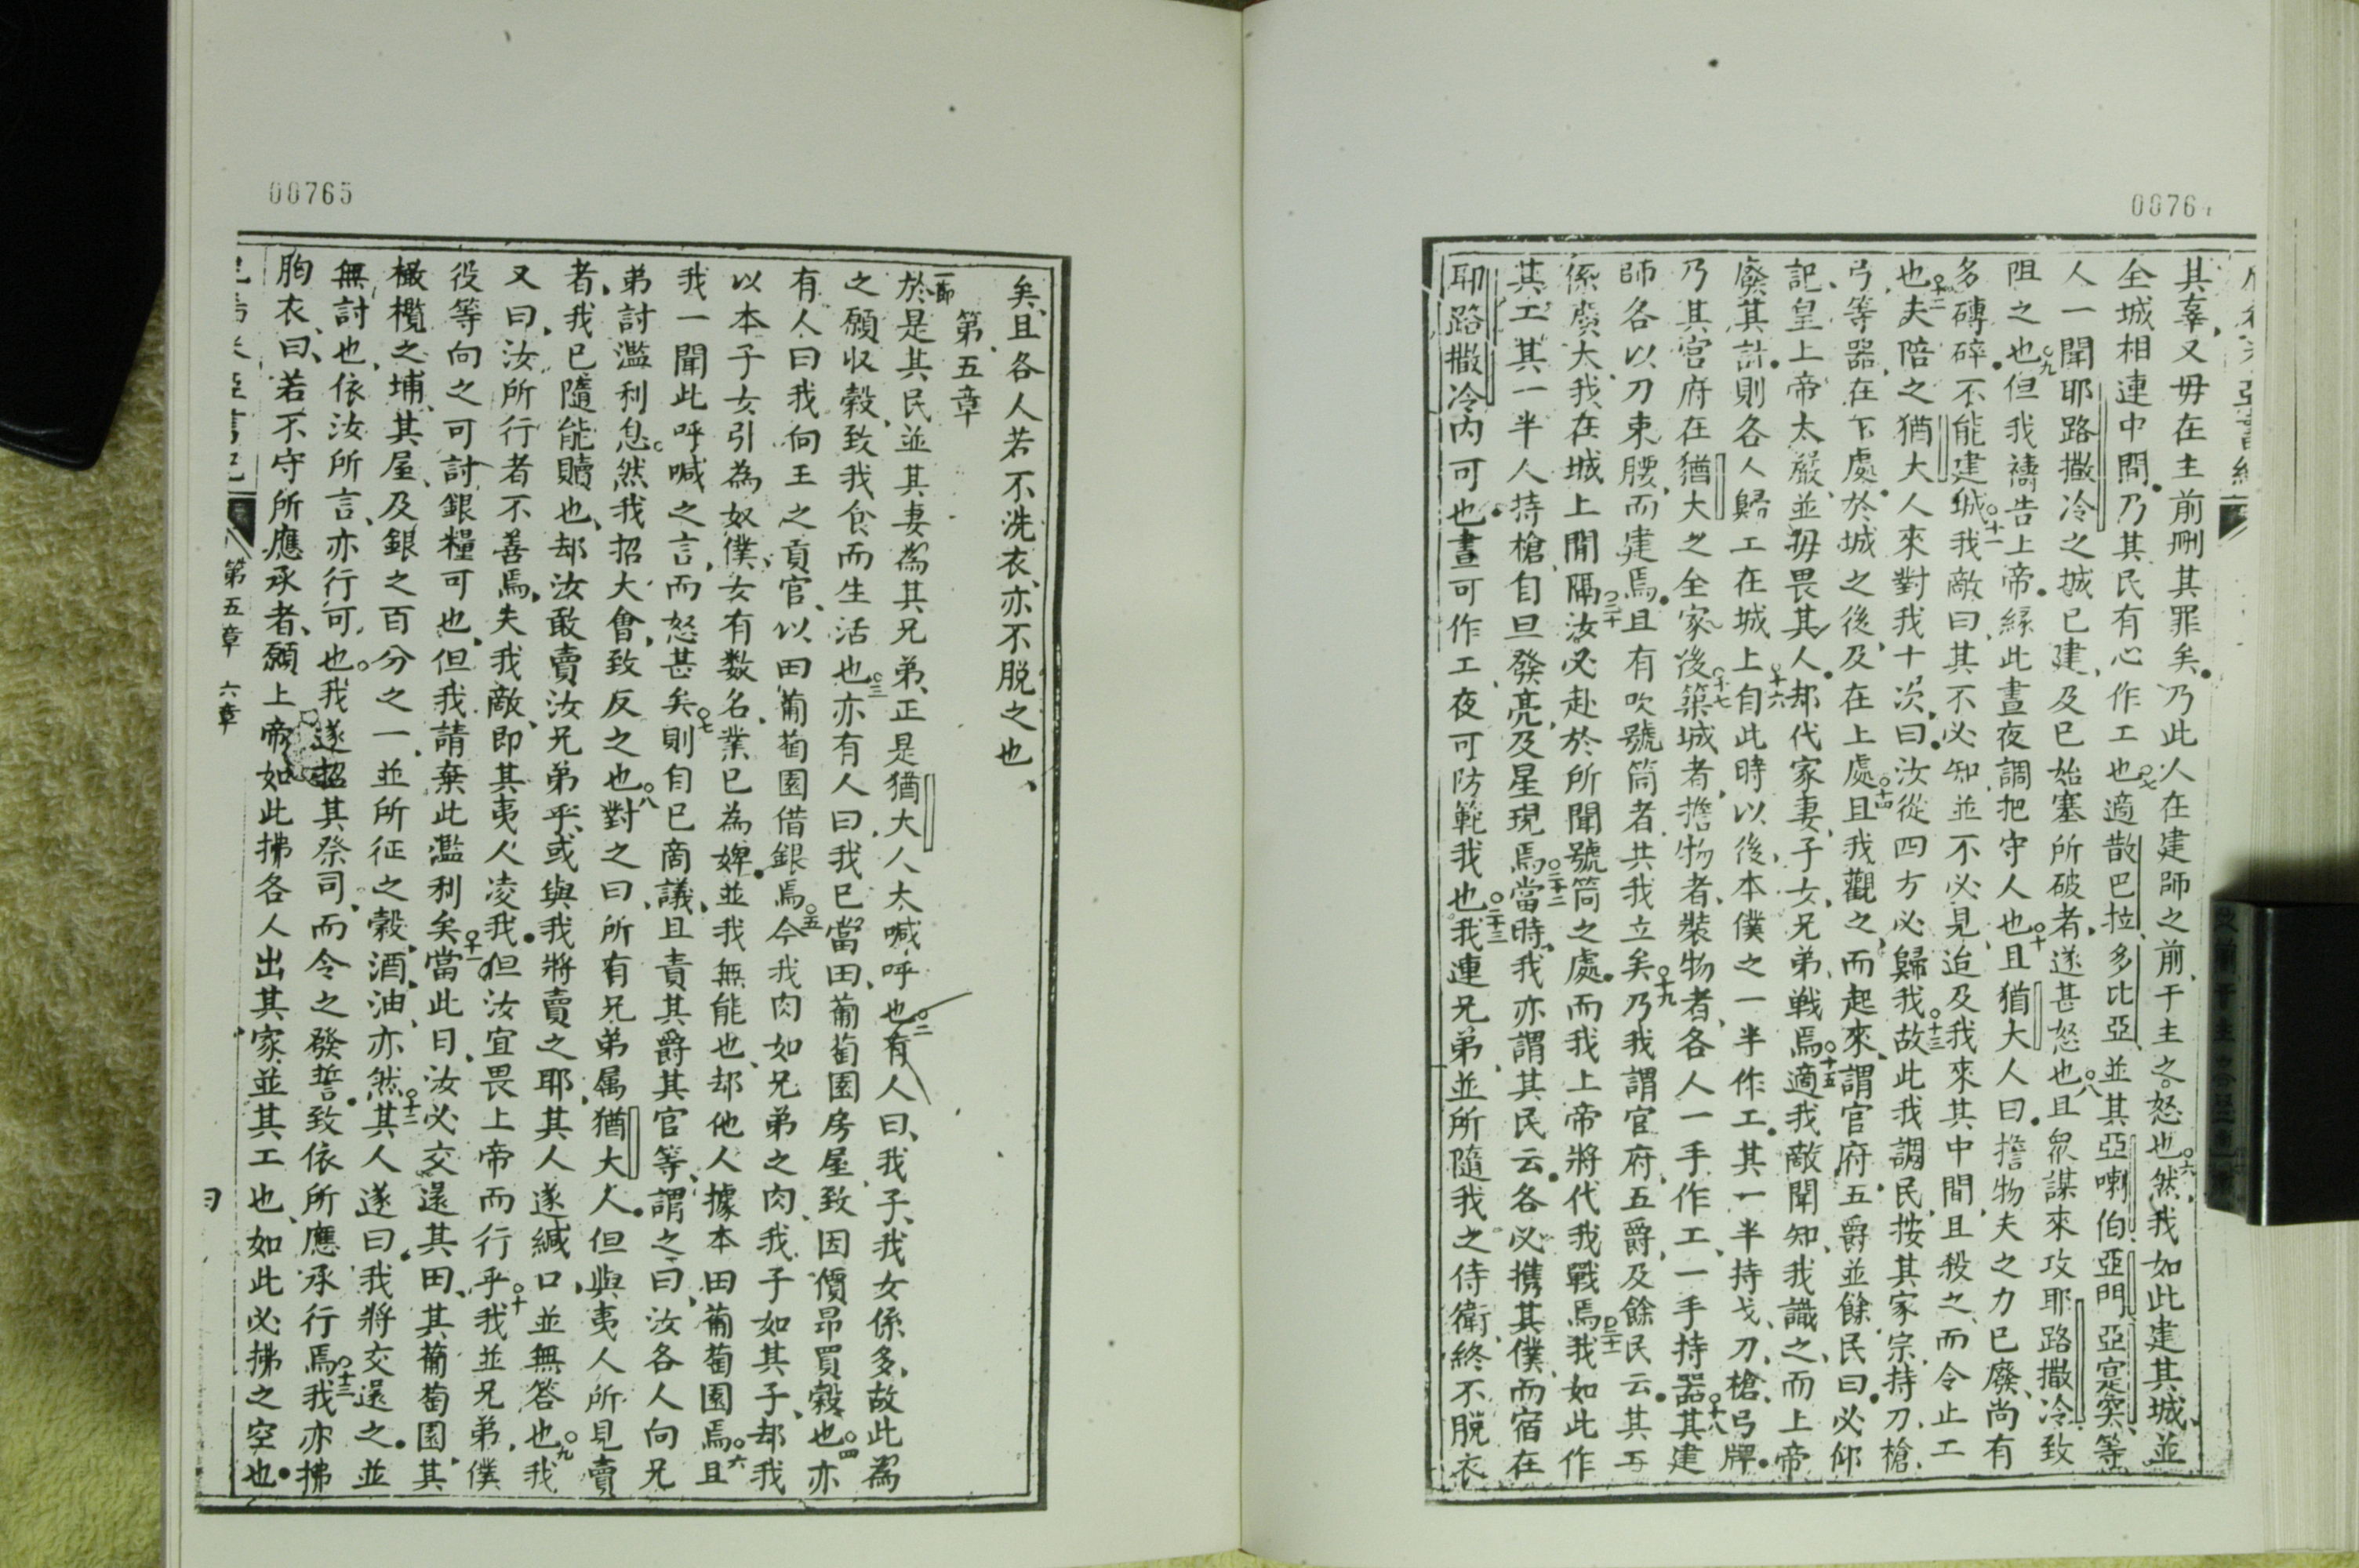 00764
其辜、又毋在主前刪其罪矣、乃此人在建師之前、干主之怒也、○六然、我如此建其城、並
全城相連中間、乃其民有心作工也、○七適散巴拉、多比亞、並其亞喇伯、亞門、亞寔突、等
人一聞耶路撒冷之城已建、及已始塞所破者、遂甚怒也、○八且眾謀來攻耶路撒冷、致
阻之也、○九但我禱告上帝、緣此晝夜調把守人也、○十且猶大人曰、擔物夫之力已廢、尚有
多磚碎、不能建城、○十一我敵曰、其不必知、並不必見、迨及我來其中間、且殺之、而令止工
也、○十二夫陪之猶大人來對我十次、曰、汝從四方必歸我、○十三故此我調民、按其家宗、持刀、槍、
弓等器、在下處、於城之後、及在上處、○十四且我觀之、而起來、謂官府、五爵、並餘民曰、必仰
記皇上帝太嚴、並毋畏其人、却代家妻、子女、兄弟、戰焉、○十五適我敵聞知、我識之、而上帝
廢其計、則各人歸工在城上、○十六自此時以後、本僕之一半作工、其一半持戈、刀、槍、弓、牌、
乃其官府在猶大之全家後、○十七築城者、擔物者、裝物者、各人一手作工、一手持器、○十八其建
師各以刀束腰、而建焉、且有吹號筒者、共我立矣、○十九乃我謂官府、五爵、及餘民云、其工
係廣大、我在城上間隔、○二十汝必赴於所聞號筒之處、而我上帝將代我戰焉、○二十一我如此作
其工、其一半人持槍、自旦發亮、及星現焉、○二十二當時、我亦謂其民云、各必攜其僕、而宿在
耶路撒冷內可也、晝可作工、夜可防範我也、○二十三我連兄弟、並所隨我之侍衛、終不脫衣
00765
矣、且各人若不洗衣、亦不脫之也、
第五章
一節於是其民並其妻為其兄弟、正是猶大人大喊呼也、○二有人曰、我子、我女係多、故此為
之願收穀、致我食而生活也、○三亦有人曰、我已當田、葡萄園房屋、致因價昂買穀也、○四亦
有人曰、我向王之貢官、以田葡萄園借銀焉、○五今我肉如兄弟之肉、我子如其子、却我
以本子女引為奴僕、女有数名、業已為婢、並我無能也、却他人據本田葡萄園焉、○六且
我一聞此呼喊之言、而怒甚矣、○七則自己商議、且責其爵其官等、謂之曰、汝各人向兄
弟討濫利息。然我招大會、致反之也、○八對之曰、所有兄弟属猶大人、但與夷人所見賣
者、我已隨能贖也、却汝敢賣汝兄弟乎、或與我將賣之耶、其人遂緘口、並無答也、○九我
又曰、汝所行者不善焉、夫我敵、即其夷人凌我、但汝宜畏上帝而行乎、○十我並兄弟、僕
役等向之可討銀糧可也、但我請棄此濫利矣、○十一當此日、汝必交還其田、其葡萄園、其
橄欖之埔、其屋、及銀之百分之一、並所征之穀、酒、油、亦然、○十二其人遂曰、我將交還之、並
無討也、依汝所言、亦行可也。我遂招其祭司、而令之發誓、致依所應承行焉、○十三我亦拂
胸衣、曰、若不守所應承者、願上帝如此拂各人出其家、並其工也、如此必拂之空也、
第五章 六章
曰